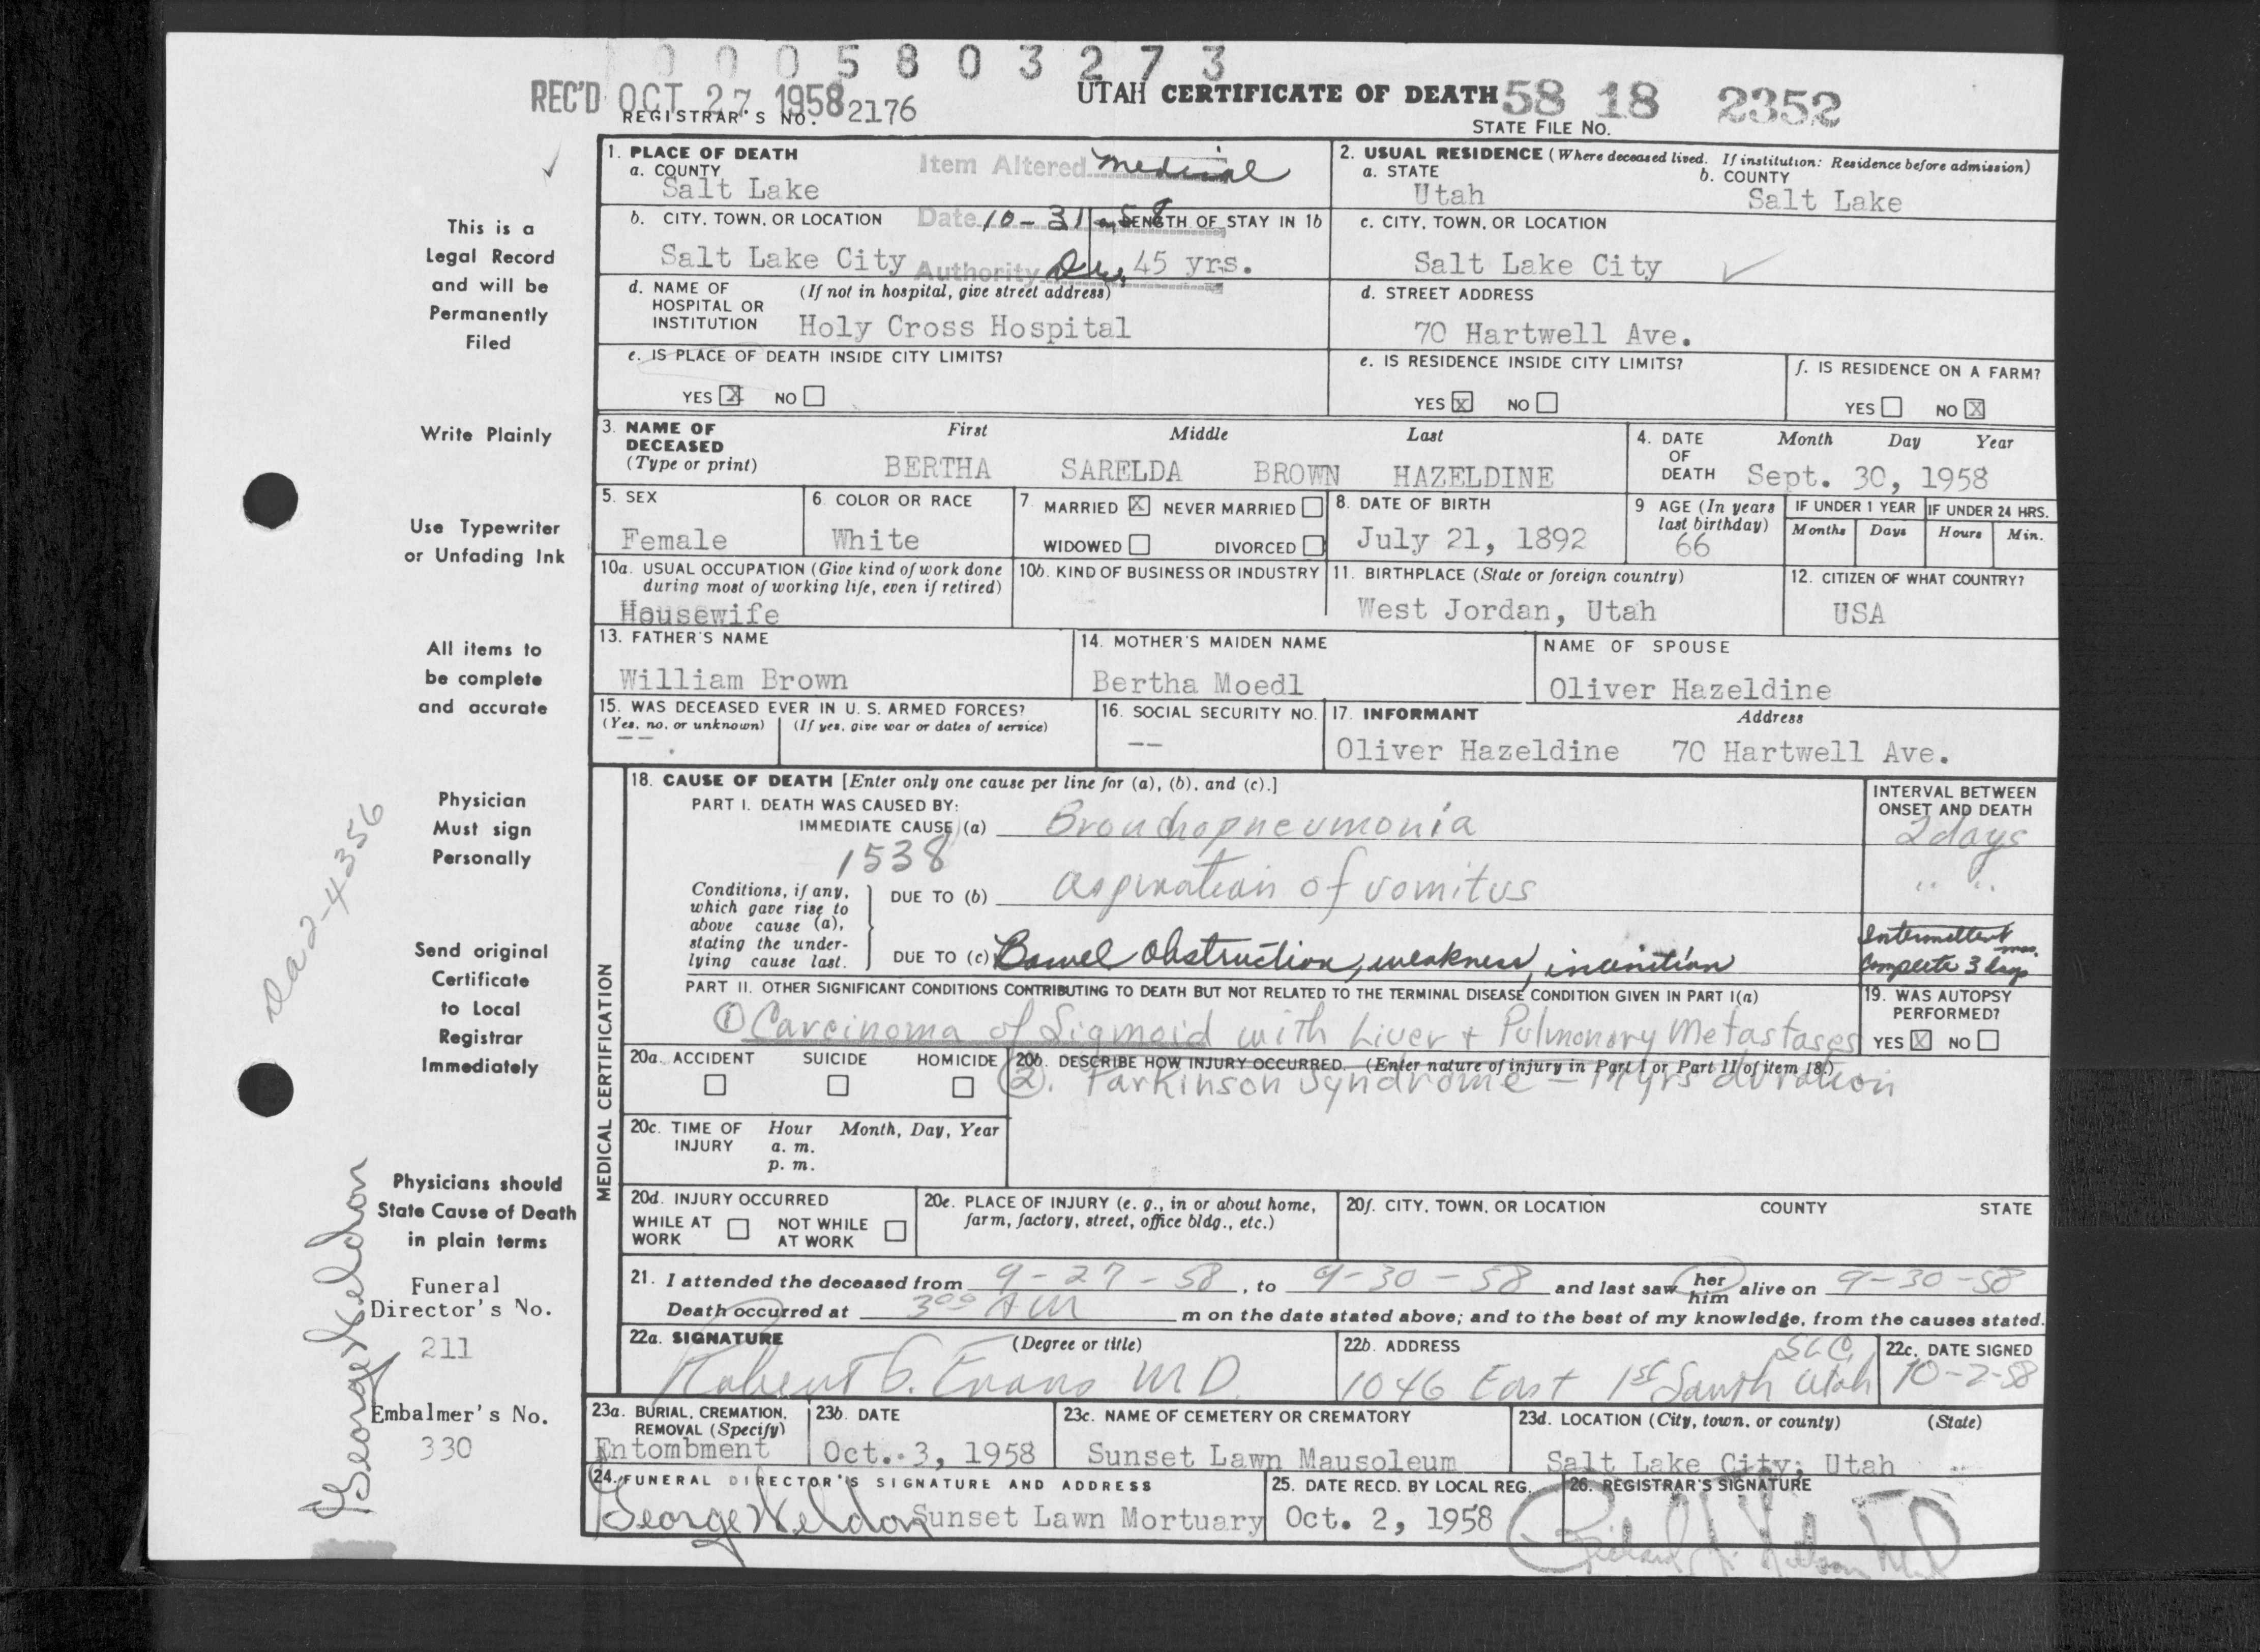 0 0 0 5 8 0 3 2 7 3
REC'D OCT 27 1958
REGISTRAR'S NO. 2176
UTAH CERTIFICATE OF DEATH 58 18 2352
STATE FILE NO.
1. PLACE OF DEATH
a. COUNTY
Salt Lake
Item Altered medical
2. USUAL RESIDENCE (Where deceased lived. If institution: Residence before admission)
a. STATE
Utah
b. COUNTY
Salt Lake
b. CITY, TOWN, OR LOCATION
Salt Lake City
Date 10-31-58
Authority
LENGTH OF STAY IN 1b
45 yrs.
c. CITY, TOWN, OR LOCATION
Salt Lake City
d. NAME OF HOSPITAL OR INSTITUTION (If not in hospital, give street address)
Holy Cross Hospital
d. STREET ADDRESS
70 Hartwell Ave.
e. IS PLACE OF DEATH INSIDE CITY LIMITS?
YES X NO
e. IS RESIDENCE INSIDE CITY LIMITS?
YES X NO
f. IS RESIDENCE ON A FARM?
YES NO X
3. NAME OF DECEASED (Type or print)
First Middle Last
BERTHA SARELDA BROWN HAZELDINE
4. DATE OF DEATH
Month Day Year
Sept. 30, 1958
5. SEX
Female
6. COLOR OR RACE
White
7. MARRIED X NEVER MARRIED
WIDOWED DIVORCED
8. DATE OF BIRTH
July 21, 1892
9 AGE (In years last birthday)
66
IF UNDER 1 YEAR
Months Days
IF UNDER 24 HRS.
Hours Min.
10a. USUAL OCCUPATION (Give kind of work done during most of working life, even if retired)
Housewife
10b. KIND OF BUSINESS OR INDUSTRY
11. BIRTHPLACE (State or foreign country)
West Jordan, Utah
12. CITIZEN OF WHAT COUNTRY?
USA
13. FATHER'S NAME
William Brown
14. MOTHER'S MAIDEN NAME
Bertha Moedl
NAME OF SPOUSE
Oliver Hazeldine
15. WAS DECEASED EVER IN U. S. ARMED FORCES?
(Yes, no, or unknown) (If yes, give war or dates of service)
--
16. SOCIAL SECURITY NO.
--
17. INFORMANT Address
Oliver Hazeldine 70 Hartwell Ave.
MEDICAL CERTIFICATION
18. CAUSE OF DEATH [Enter only one cause per line for (a), (b), and (c).]
PART I. DEATH WAS CAUSED BY:
IMMEDIATE CAUSE (a) Bronchopneumonia
1538
INTERVAL BETWEEN ONSET AND DEATH
2 days
Conditions, if any, which gave rise to above cause (a), stating the underlying cause last.
DUE TO (b) aspiration of vomitus
" "
DUE TO (c) Bowel obstruction, weakness, inanition
Intermittent mos.
Complete 3 days
PART II. OTHER SIGNIFICANT CONDITIONS CONTRIBUTING TO DEATH BUT NOT RELATED TO THE TERMINAL DISEASE CONDITION GIVEN IN PART I(a)
① Carcinoma of Sigmoid with Liver + Pulmonary Metastases
19. WAS AUTOPSY PERFORMED?
YES X NO
20a. ACCIDENT SUICIDE HOMICIDE
20b. DESCRIBE HOW INJURY OCCURRED. (Enter nature of injury in Part I or Part II of item 18.)
②. Parkinson Syndrome - yrs duration
20c. TIME OF INJURY Hour Month, Day, Year
a. m.
p. m.
20d. INJURY OCCURRED
WHILE AT WORK NOT WHILE AT WORK
20e. PLACE OF INJURY (e. g., in or about home, farm, factory, street, office bldg., etc.)
20f. CITY, TOWN, OR LOCATION COUNTY STATE
21. I attended the deceased from 9-27-58, to 9-30-58 and last saw her him alive on 9-30-58
Death occurred at 3 00 AM m on the date stated above; and to the best of my knowledge, from the causes stated.
22a. SIGNATURE (Degree or title)
Robert G. Evans M D.
22b. ADDRESS
1046 East 1st South SLC, Utah
22c. DATE SIGNED
10-2-58
23a. BURIAL, CREMATION, REMOVAL (Specify)
Entombment
23b. DATE
Oct. 3, 1958
23c. NAME OF CEMETERY OR CREMATORY
Sunset Lawn Mausoleum
23d. LOCATION (City, town, or county) (State)
Salt Lake City, Utah
24. FUNERAL DIRECTOR'S SIGNATURE AND ADDRESS
George Weldon Sunset Lawn Mortuary
25. DATE RECD. BY LOCAL REG.
Oct. 2, 1958
26. REGISTRAR'S SIGNATURE
This is a
Legal Record
and will be
Permanently
Filed
Write Plainly
Use Typewriter
or Unfading Ink
All items to
be complete
and accurate
Physician
Must sign
Personally
Send original
Certificate
to Local
Registrar
Immediately
Physicians should
State Cause of Death
in plain terms
Funeral
Director's No.
211
Embalmer's No.
330
Da 2-4356
George Weldon